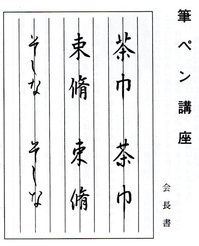 筆ペン講座
会長書
茶巾 茶巾
束脩 束脩
そしな そしな